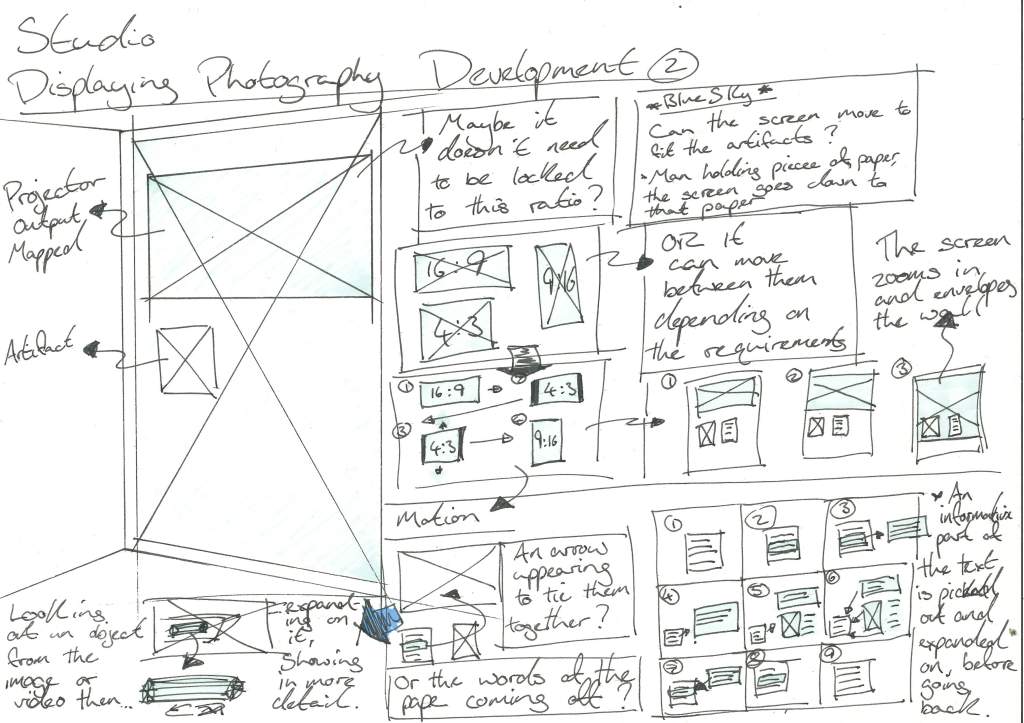 Studio
Displaying Photography Development 2
Projector
Output
Mapped
Artifact
Maybe it
doesn't need
to be locked
to this ratio?
*Blue Sky*
Can the screen move to
fit the artifacts?
Man holding piece of paper,
the screen goes down to
that paper
16:9
9:16
4:3
OR it
can move
between them
depending on
the requirements
The screen
zooms in
and envelopes
the wall
1
16:9
2
4:3
3
4:3
9:16
1
2
3
Motion
An arrow
appearing
to tie them
together?
Or the words of the
paper coming off?
Looking
at an object
from the
image or
video then...
expand
ing on
it,
showing
in more
detail.
1
2
3
4
5
6
7
8
9
* An
informative
part of
the text
is picked
out and
expanded
on, before
going
back.